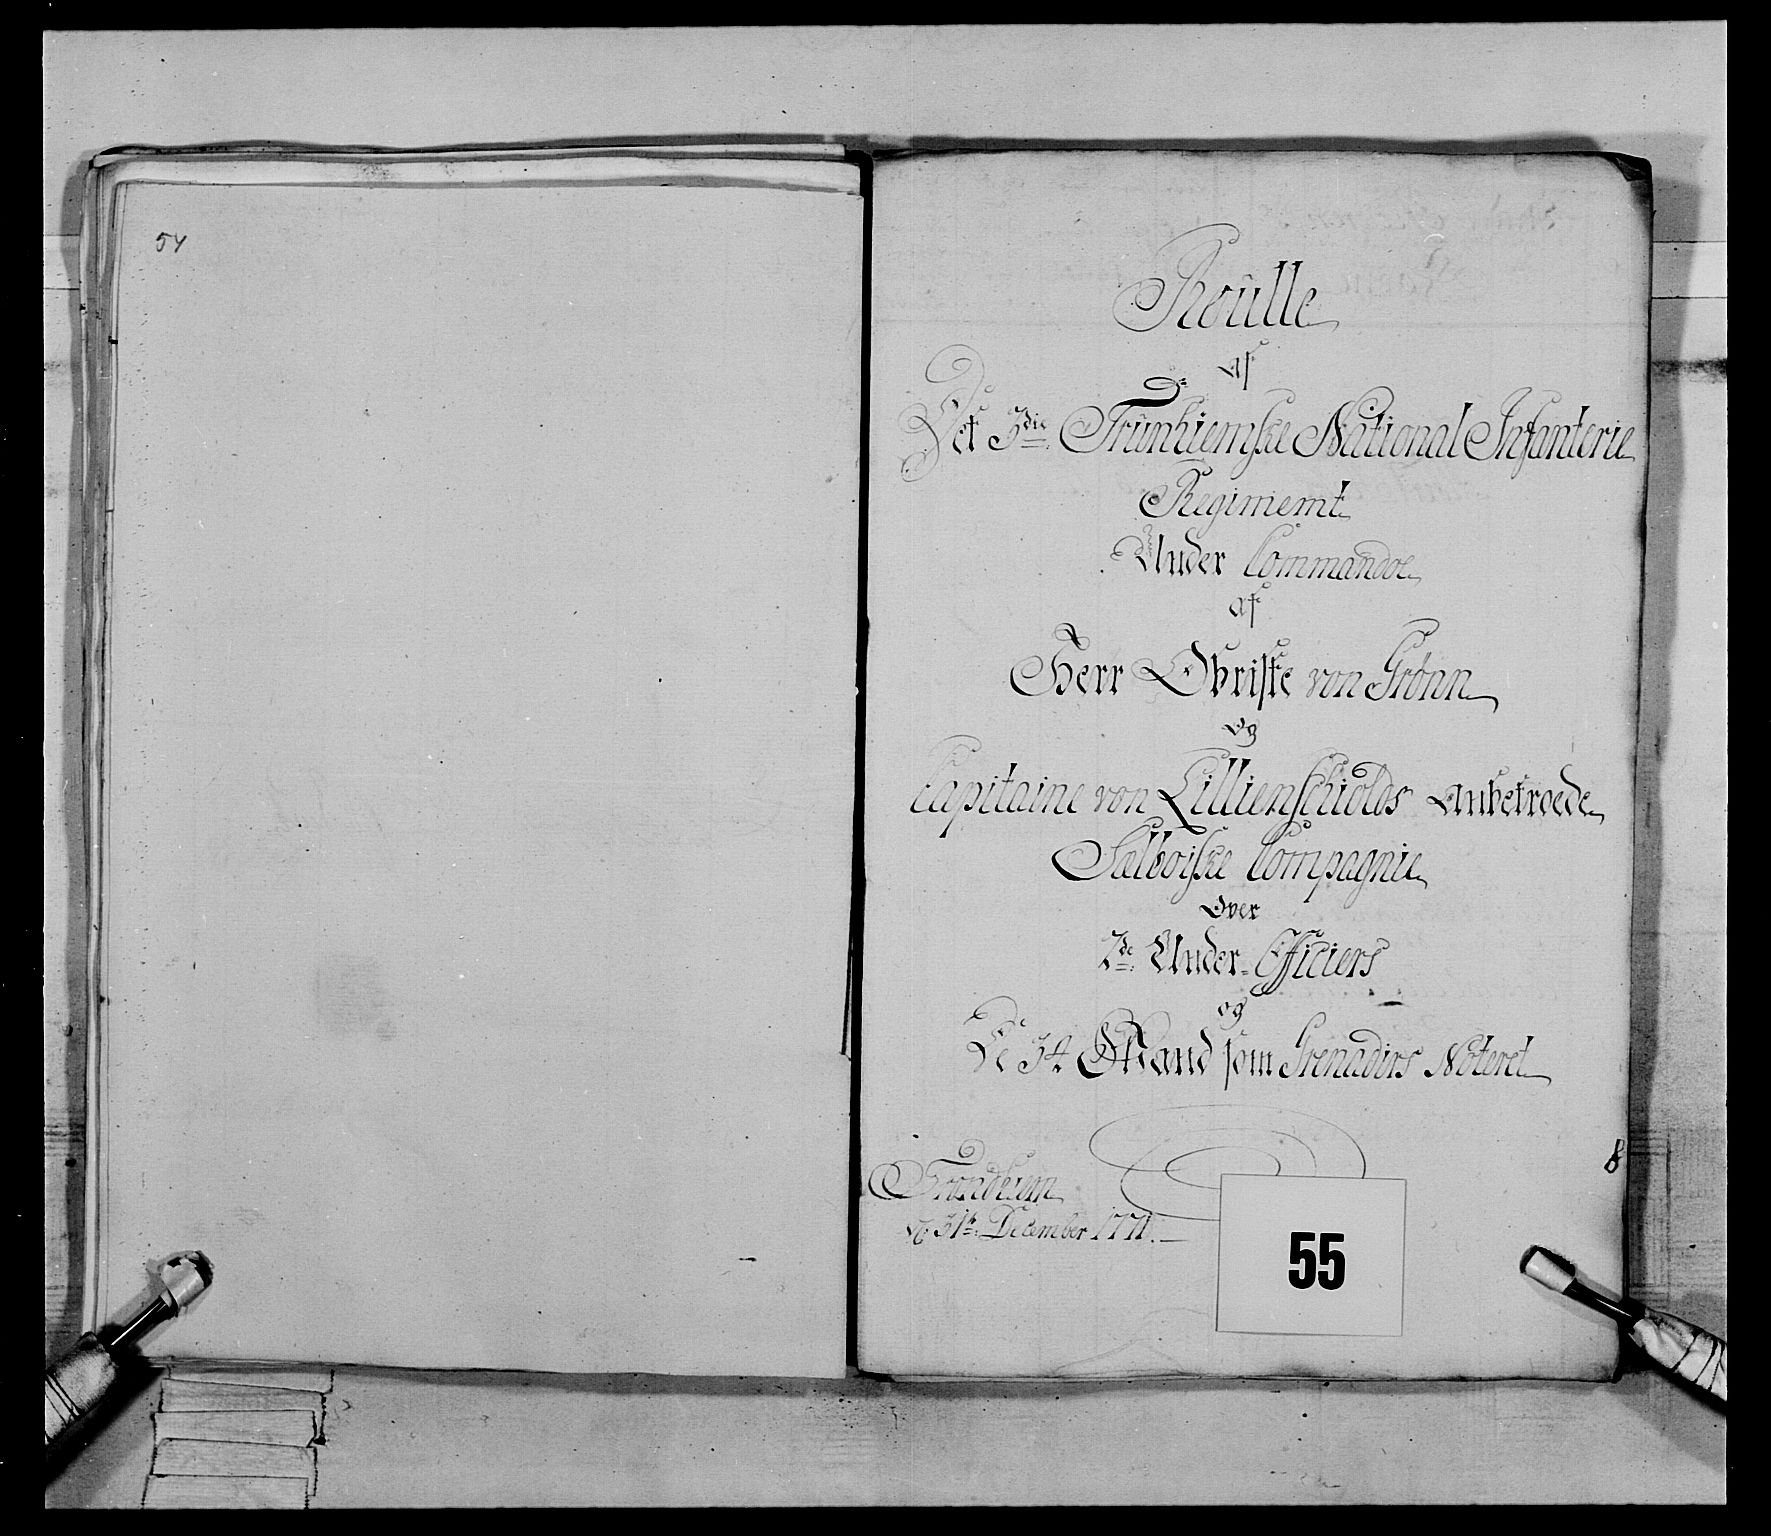 54
Roulle
Af
Det 3die Trünhiemske National Infanterie
Regimemt
Under Commandoe
af
Herr Obriste von Grönn
Og
Capitaine von Lillienschiolds Anbetroede
Sælboiske Compagnie
Over
2de Under-Officiers
og
De 34 Mand som Grenadirs Noteret
8
Trondhiem
d. 31te December 1771.
55